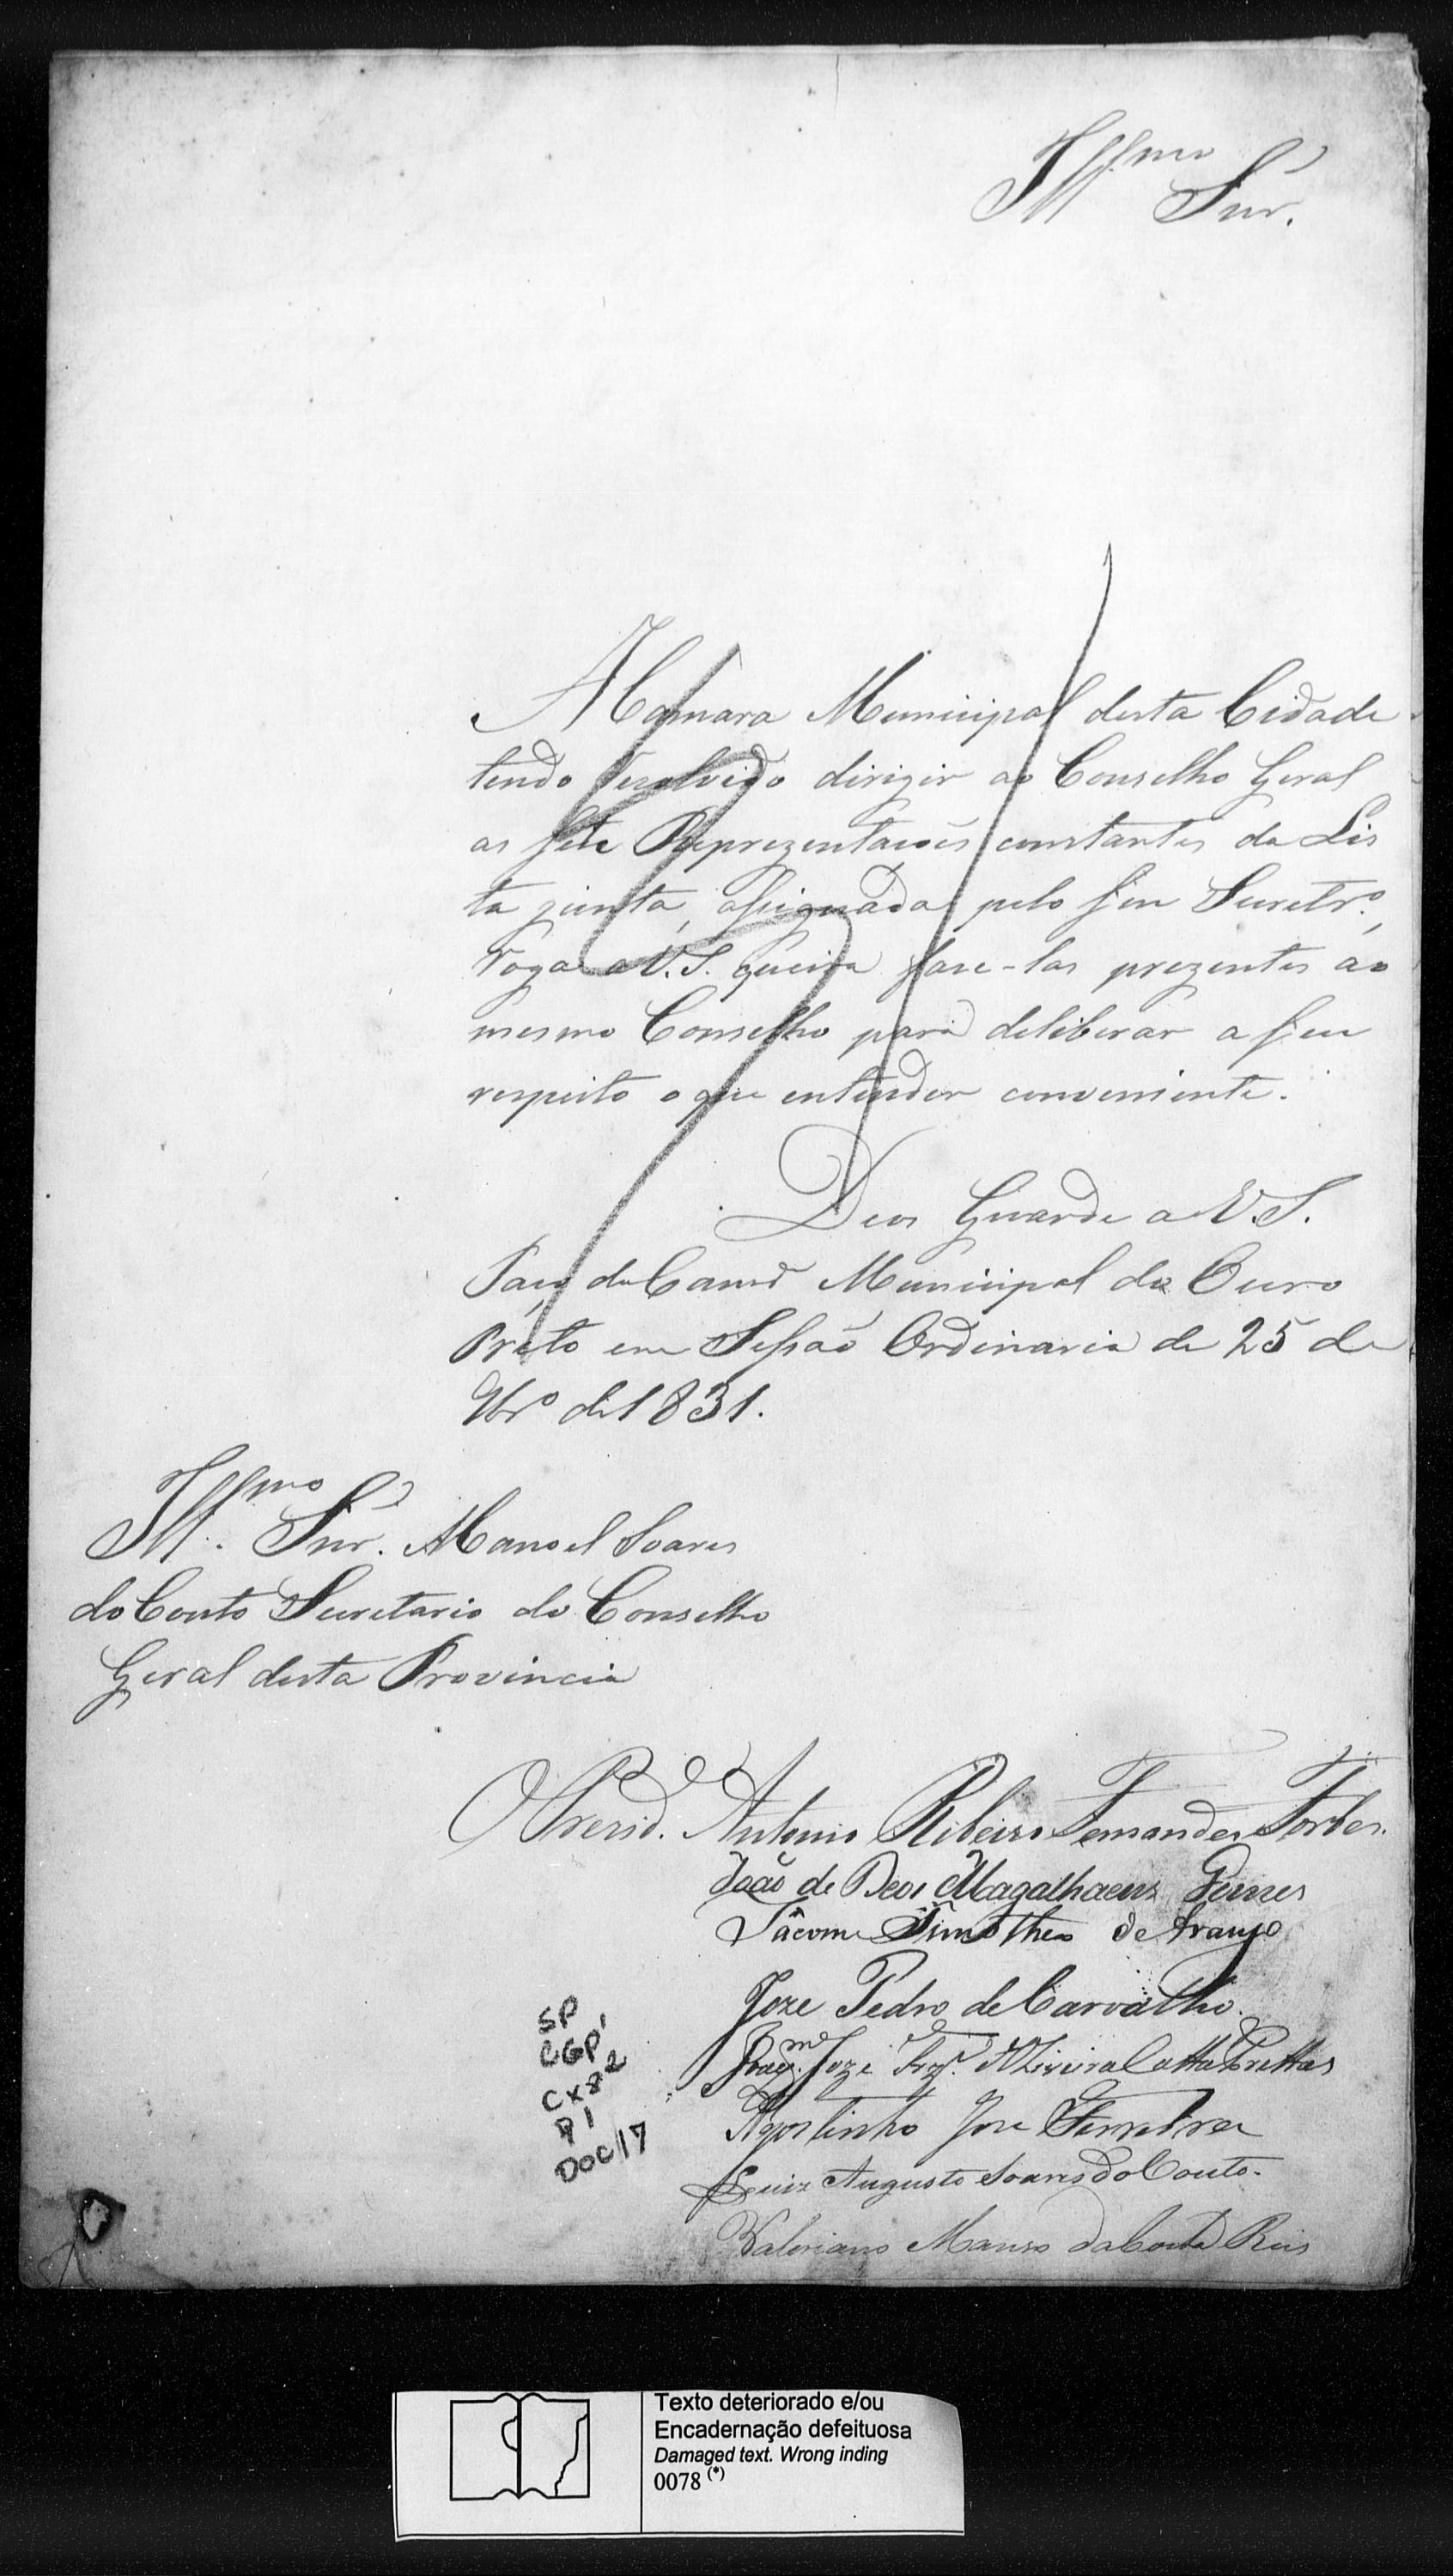 Illmo Snr.
A Camara Municipal desta Cidade
tendo resolvido dirigir ao Conselho Geral
as sete Reprezentacoẽs constantes da Lis
ta junta, assignada pelo seu Secretro.,
roga a V.S. queira fase-las prezentes ao
mesmo Conselho para deliberar a seu
respeito o que entender conveniente.
Deos Guarde a V.S.
Paço da Camª Municipal do Ouro
Preto em Sessaõ Ordinaria de 25 de
de 1831.
Illmo Snr. Manoel Soares
do Couto Secretario do Conselho
Geral desta Provincia
O Presid. Antonio Ribeiro Fernandes Forbes.
João de Deos Magalhaens Gomes
Timotheo de Araujo
Joze Pedro de Carvalho.
Joaqm. Joze Oliveira Cotta
Agostinho Jose Ferreira
Luiz Augusto Soares do Couto.
Valeriano Manso da Costa Reis
SP
CGP1
CX82
P1
DOC17
Texto deteriorado e/ou
Encadernação defeituosa
Damaged text. Wrong inding
0078 (*)